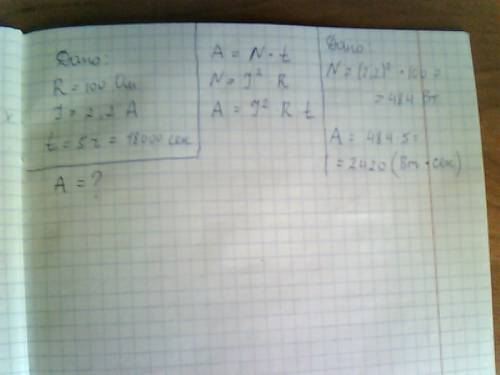 Дано:
R = 100 Ом
I = 2,2 А
t = 5 ч = 18000 сек
A = ?
A = N · t
N = I² R
A = I² R t
Дано:
N = (2,2)² · 100 =
= 484 Вт
A = 484 · 5 =
= 2420 (Вт · сек)